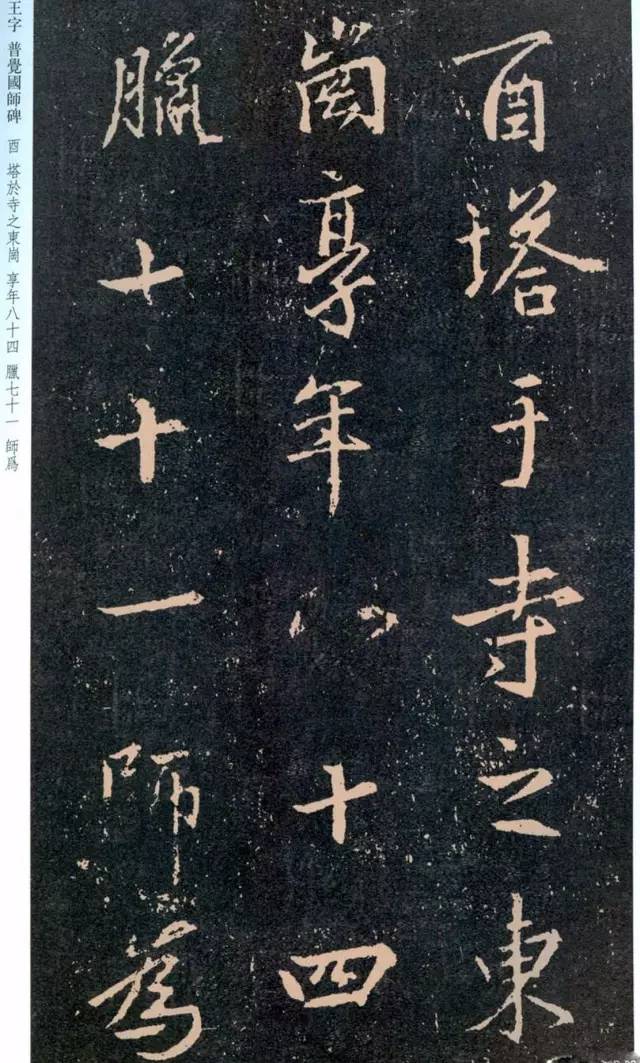 酉塔于寺之東
崗享年八十四
臘十十一師為
王字 普覺國師碑 酉 塔於寺之東崗 享年八十四 臘七十一 師爲